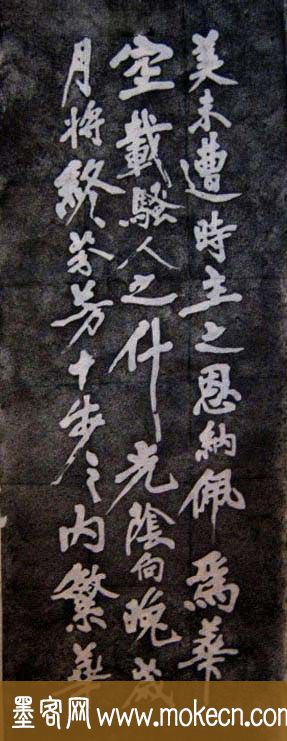 美未遭時主之恩納佩爲華
空載騷人之什光陰向晚歲
月將終芬芳十步之内繁華
墨客网 www.mokecn.com